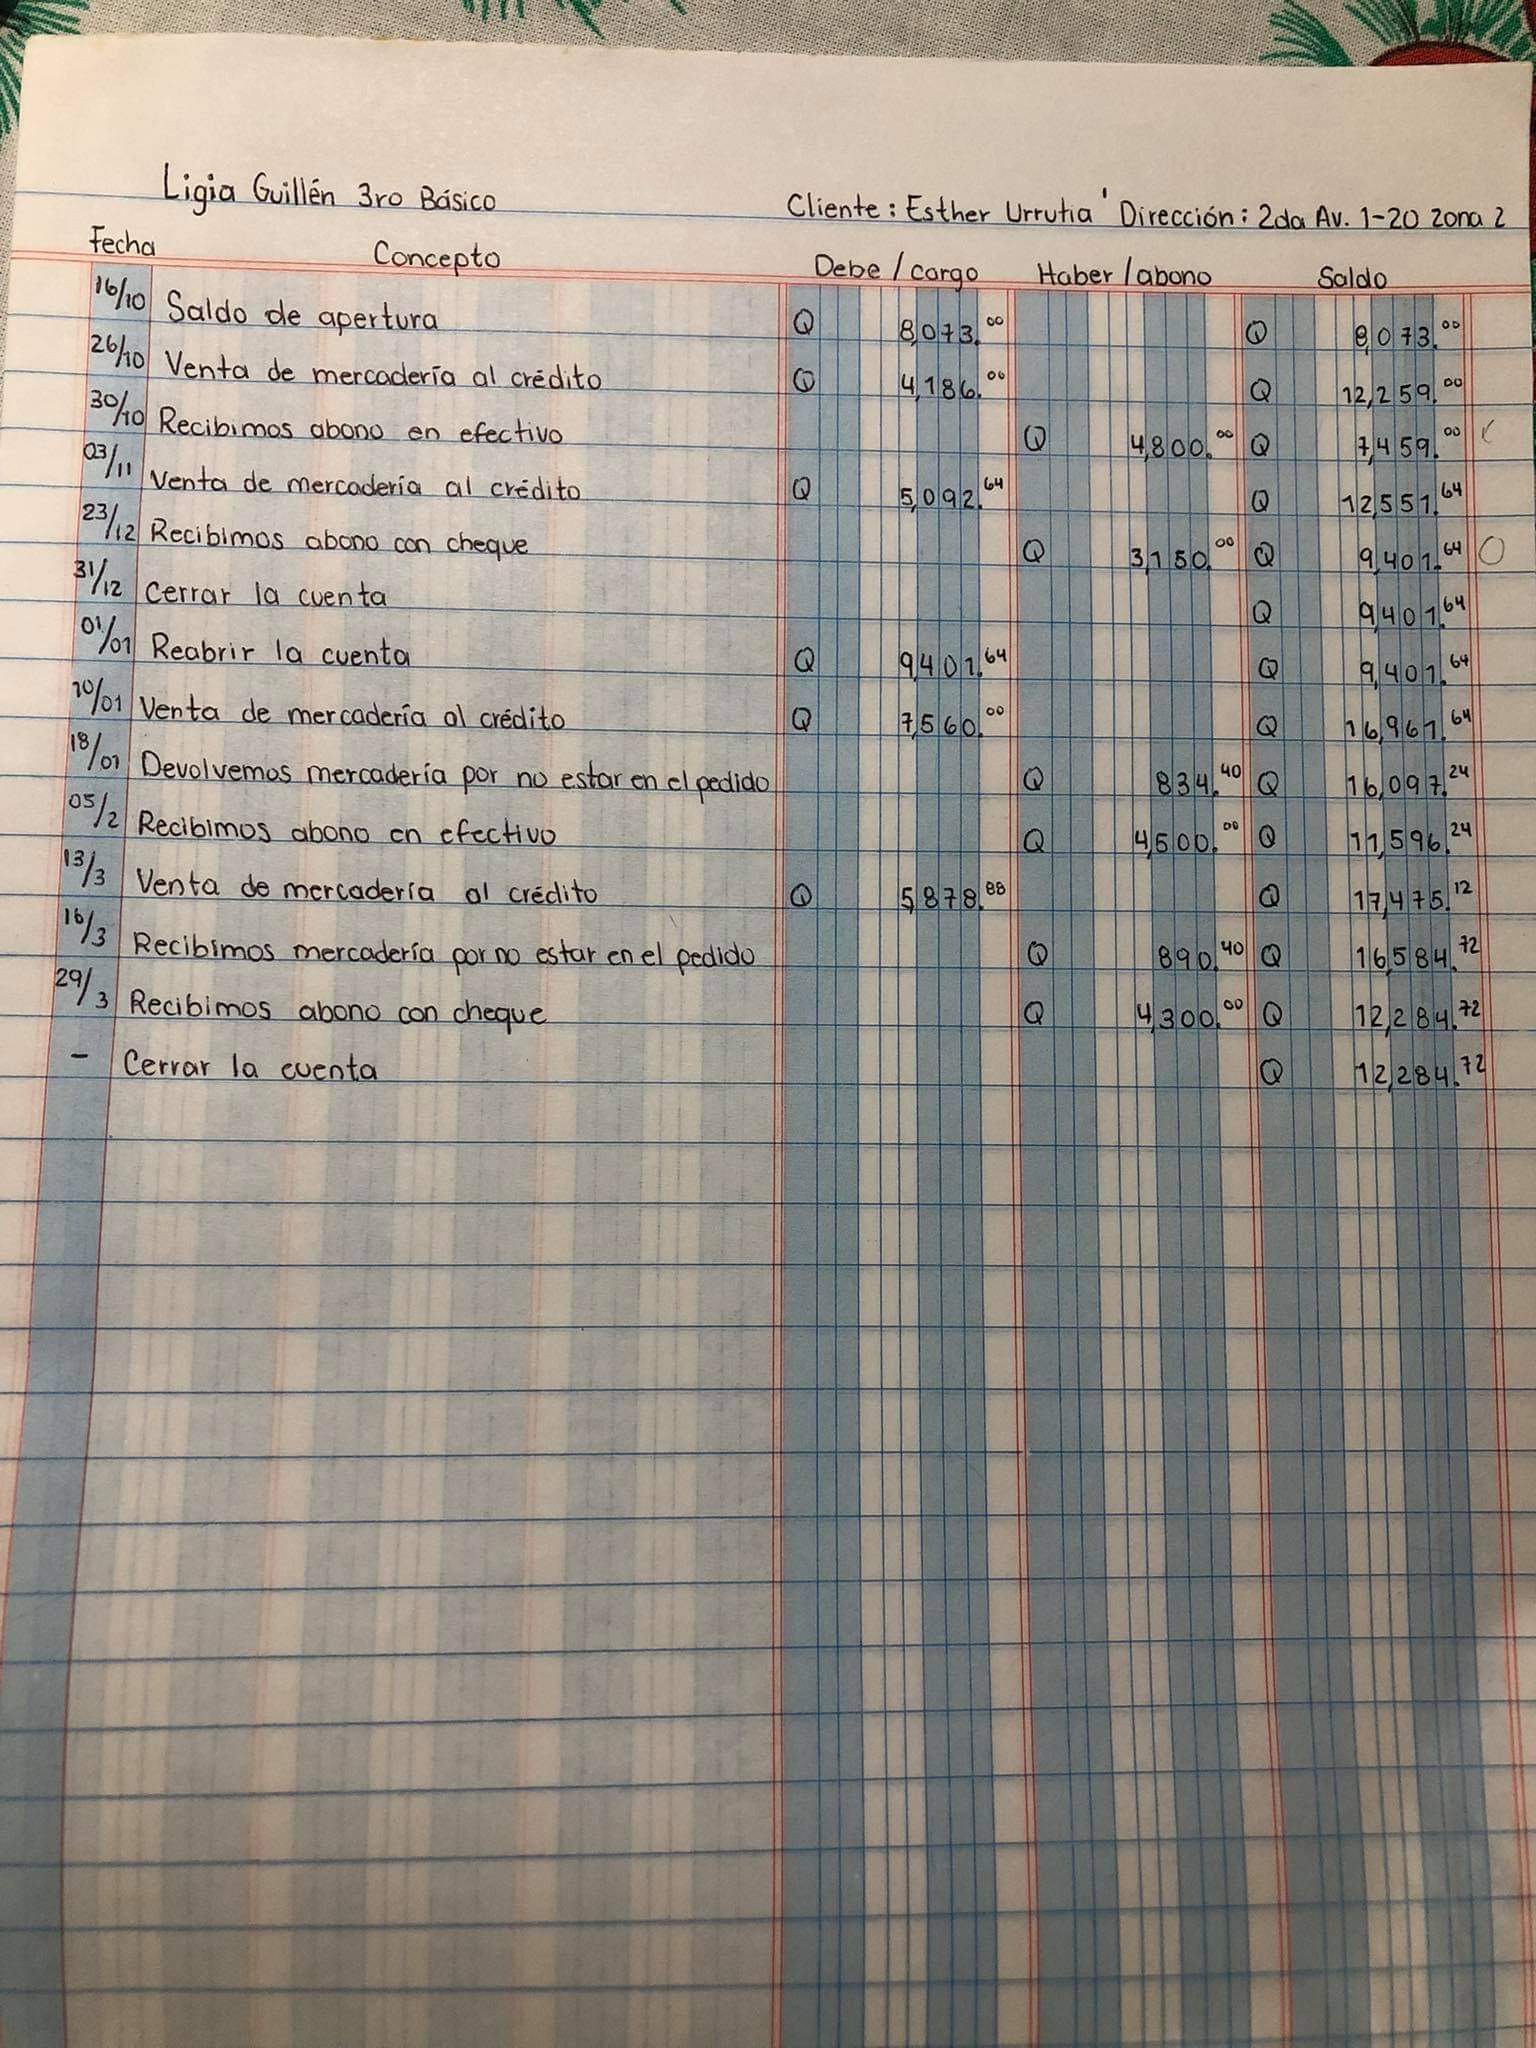 Ligia Guillén 3ro Básico Cliente: Esther Urrutia ' Dirección: 2da Av. 1-20 zona 2
Fecha Concepto Debe / cargo Haber / abono Saldo
16/10 Saldo de apertura Q 8,073.00 Q 8,073.00
26/10 Venta de mercadería al crédito Q 4,186.00 Q 12,259.00
30/10 Recibimos abono en efectivo Q 4,800.00 Q 7,459.00
03/11 Venta de mercadería al crédito Q 5,092.64 Q 12,551.64
23/12 Recibimos abono con cheque Q 3,150.00 Q 9,401.64
31/12 Cerrar la cuenta Q 9,401.64
01/01 Reabrir la cuenta Q 9,401.64 Q 9,401.64
10/01 Venta de mercadería al crédito Q 7,560.00 Q 16,961.64
18/01 Devolvemos mercadería por no estar en el pedido Q 834.40 Q 16,097.24
05/2 Recibimos abono en efectivo Q 4,500.00 Q 11,596.24
13/3 Venta de mercadería al crédito Q 5,878.88 Q 17,475.12
16/3 Recibimos mercadería por no estar en el pedido Q 890.40 Q 16,584.72
29/3 Recibimos abono con cheque Q 4,300.00 Q 12,284.72
- Cerrar la cuenta Q 12,284.72